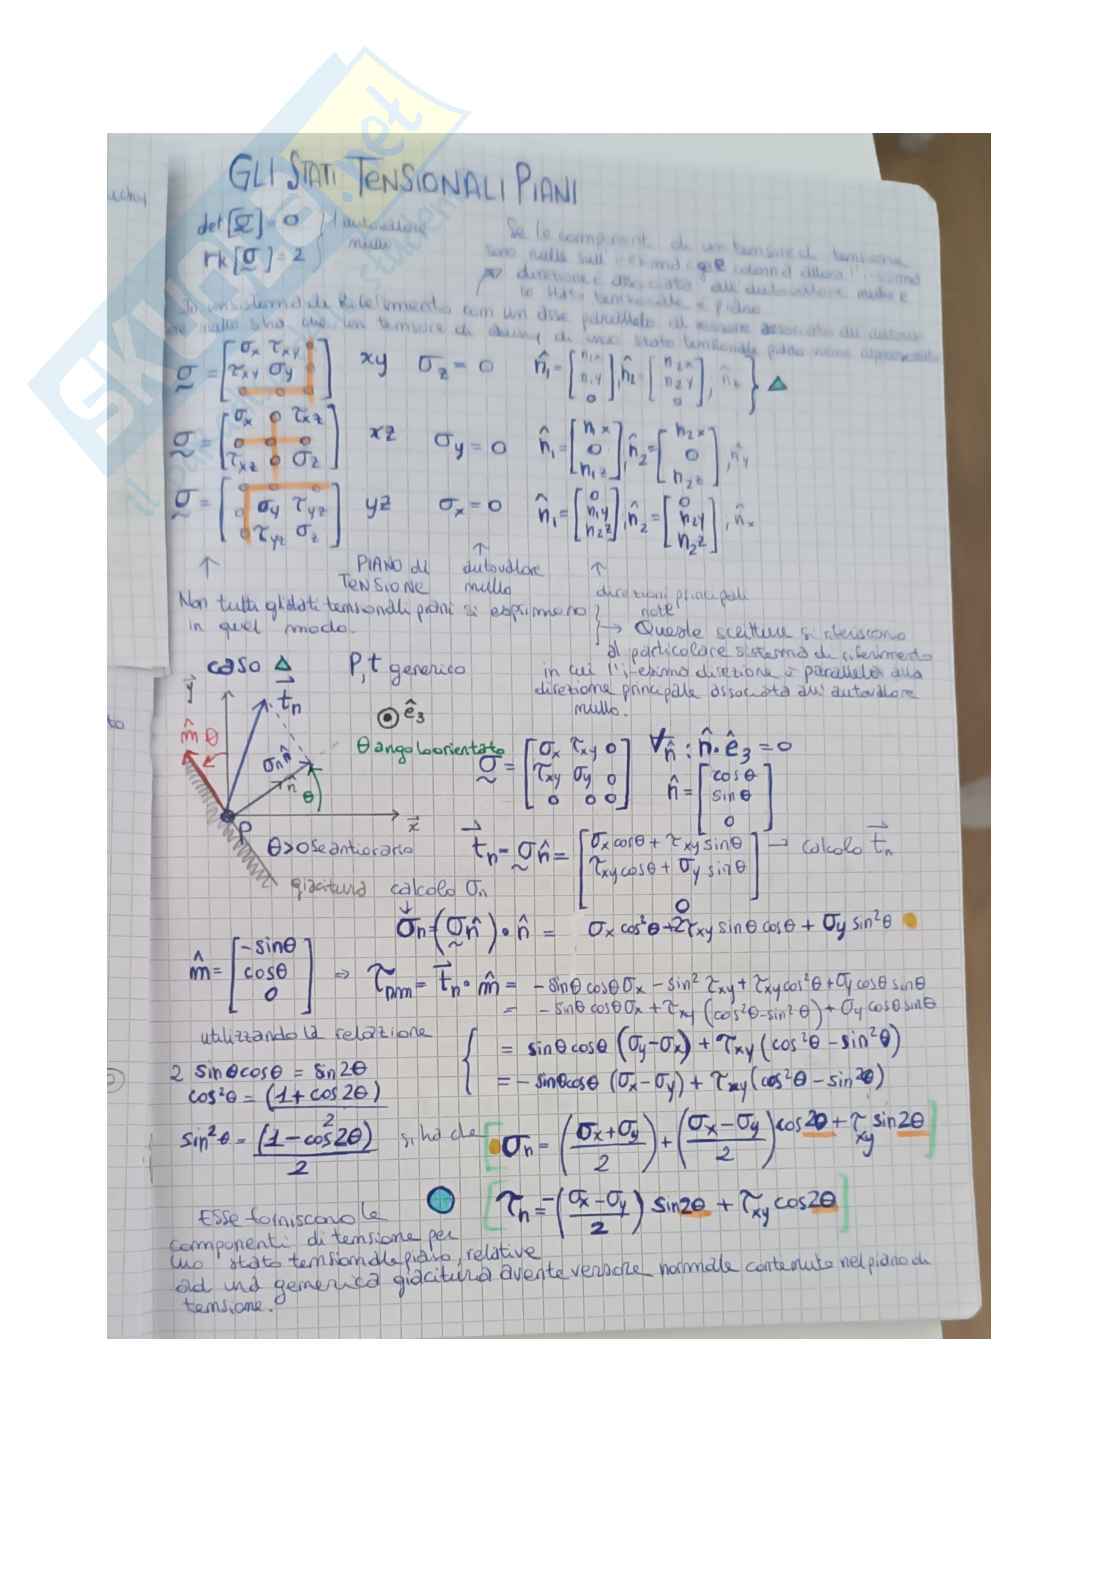 GLI STATI TENSIONALI PIANI
det[σ] = 0 } 1 autovalore
rk[σ] = 2 } nullo
Se le componenti di un tensore di tensione
sono nulle sull'i-esima colonna allora l'i-esima
direzione è associata all'autovalore nullo e
lo stato tensionale è piano
In un sistema di riferimento con un asse parallelo al
σ = [σx τxy 0; τxy σy 0; 0 0 0] xy σz = 0 n̂1 = [n1x; n1y; 0], n̂2 = [n2x; n2y; 0], n̂z } △
σ = [σx 0 τxz; 0 0 0; τxz 0 σz] xz σy = 0 n̂1 = [nx; 0; n1z], n̂2 = [n2x; 0; n2z], n̂y
σ = [0 0 0; 0 σy τyz; 0 τyz σz] yz σx = 0 n̂1 = [0; n1y; n2z], n̂2 = [0; n2y; n2z], n̂x
↑ PIANO di TENSIONE ↑ autovalore nullo ↑ direzioni principali note
Non tutti gli stati tensionali piani si esprimono
in quel modo.
→ Queste scritture si riferiscono
al particolare sistema di riferimento
in cui l'i-esima direzione è parallela alla
direzione principale associata all'autovalore
nullo.
caso △ P,t generico
y tn
m̂ θ
σn n̂
n̂
θ
P
x
ê3
θ angolo orientato
θ>0 se antiorario
giacitura
σ = [σx τxy 0; τxy σy 0; 0 0 0] ∀n̂ : n̂·ê3 = 0
n̂ = [cosθ; sinθ; 0]
tn = σn̂ = [σx cosθ + τxy sinθ; τxy cosθ + σy sinθ; 0] → calcolo tn
calcolo σn
↓
σn = (σn̂)·n̂ = σx cos²θ + 2τxy sinθ cosθ + σy sin²θ
m̂ = [-sinθ; cosθ; 0] ⇒ τnm = tn·m̂ = -sinθcosθσx - sin² τxy + τxy cos²θ + σy cosθ sinθ
= -sinθcosθσx + τxy (cos²θ-sin²θ) + σy cosθsinθ
= sinθcosθ (σy-σx) + τxy (cos²θ - sin²θ)
= -sinθcosθ (σx-σy) + τxy (cos²θ - sin²θ)
utilizzando la relazione
2 sinθcosθ = sn2θ
cos²θ = (1+cos2θ)/2
sin²θ = (1-cos2θ)/2 si ha che
σn = ((σx+σy)/2) + ((σx-σy)/2) cos2θ + τxy sin2θ
τn = -((σx-σy)/2) sin2θ + τxy cos2θ
Esse forniscono le
componenti di tensione per
uno stato tensionale piano, relative
ad una generica giacitura avente versore normale contenuto nel piano di
tensione.
SKUOLA.net